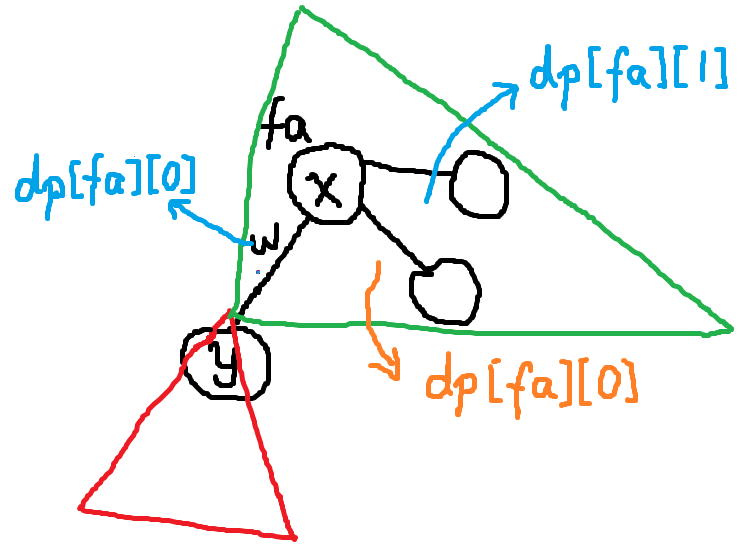 dp[fa][1]
fa
dp[fa][0]
x
w
y
dp[fa][0]